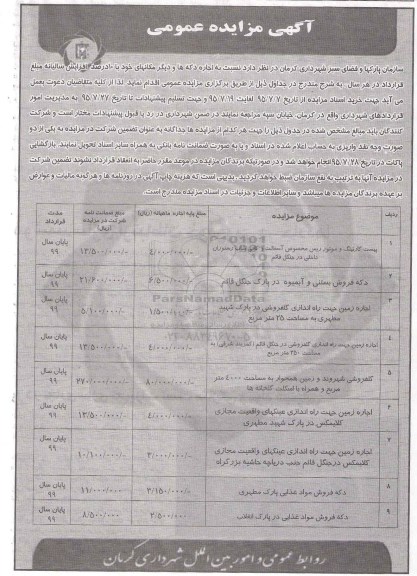 آگهی مزایده عمومی
سازمان پارکها و فضای سبز شهرداری کرمان در نظر دارد نسبت به اجاره دکه ها و دیگر مکانهای خود با ۱۰درصد افزایش سالیانه مبلغ
قرارداد در هر سال به شرح مندرج در جداول ذیل از طریق برگزاری مزایده عمومی اقدام نماید. لذا از کلیه متقاضیان دعوت بعمل
می آید جهت خرید اسناد مزایده از تاریخ ۹۵.۷.۷ لغایت ۹۵.۷.۱۹ و جهت تسلیم پیشنهادات تا تاریخ ۹۵.۷.۲۷ به مدیریت امور
قراردادهای شهرداری واقع در کرمان خیابان سپه مراجعه نمایند در ضمن شهرداری در رد یا قبول پیشنهادات مختار است و شرکت
کنندگان باید مبلغ مشخص شده در جدول ذیل را جهت هر کدام از مزایده ها جداگانه به عنوان تضمین شرکت در مزایده به یکی از دو
صورت وجه نقد واریزی به حساب اعلام شده در اسناد و یا به صورت ضمانت نامه بانکی به همراه سایر اسناد تحویل نمایند. بازگشایی
پاکات در تاریخ ۹۵.۷.۲۸ انجام خواهد شد و در صورتیکه برندگان مزایده در موعد مقرر حاضر به انعقاد قرارداد نشوند تضمین شرکت
در مزایده آنها به ترتیب به نفع سازمان ضبط خواهد گردید. بدیهی است که هزینه چاپ آگهی در روزنامه ها و هرگونه مالیات و عوارض
بر عهده برندگان مزایده ها میباشد و سایر اطلاعات و جزئیات در اسناد مزایده مندرج است.
ردیف موضوع مزایده مبلغ پایه اجاره ماهیانه (ریال) مبلغ ضمانت نامه شرکت در مزایده (ریال) مدت قرارداد
۱ پیست کارتینگ و موتور ریس داخلی در جنگل قائم ۴/۰۰۰/۰۰۰/- ۱۳/۵۰۰/۰۰۰/- پایان سال ۹۹
۲ دکه فروش بستنی و آبمیوه در پارک جنگل قائم ۶/۵۰۰/۰۰۰/- ۲۱/۶۰۰/۰۰۰/- پایان سال ۹۹
۳ اجاره زمین جهت راه اندازی گلفروشی در پارک شهید مطهری به مساحت ۲۵ متر مربع ۱/۵۰۰/۰۰۰/- ۵/۱۰۰/۰۰۰/- پایان سال ۹۹
۴ اجاره زمین جهت راه اندازی گلفروشی در جنگل قائم مساحت ۲۵۰ متر مربع ۴/۰۰۰/۰۰۰/- ۱۳/۵۰۰/۰۰۰/- پایان سال ۹۹
۵ گلفروشی شهروند و زمین همجوار به مساحت ۴۰۰۰ متر مربع و همراه با اسکلت گلخانه ها ۸۰/۰۰۰/۰۰۰/- ۲۷۰/۰۰۰/۰۰۰/- پایان سال ۹۹
۶ اجاره زمین جهت راه اندازی عینکهای واقعیت مجازی کلابمکس در پارک شهید مطهری ۴/۰۰۰/۰۰۰/- ۱۳/۵۰۰/۰۰۰/- پایان سال ۹۹
۷ اجاره زمین جهت راه اندازی عینکهای واقعیت مجازی کلابمکس درجنگل قائم جنب دریاچه حاشیه بزرگراه ۳/۰۰۰/۰۰۰/- ۱۰/۱۰۰/۰۰۰/- پایان سال ۹۹
۸ دکه فروش مواد غذایی پارک مطهری ۳/۱۵۰/۰۰۰/- ۱۱/۰۰۰/۰۰۰ پایان سال ۹۹
۹ دکه فروش مواد غذایی در پارک انقلاب ۲/۵۰۰/۰۰۰ ۸/۵۰۰/۰۰۰ پایان سال ۹۹
ParsNamadData
روابط عمومی و امور بین الملل شهرداری کرمان